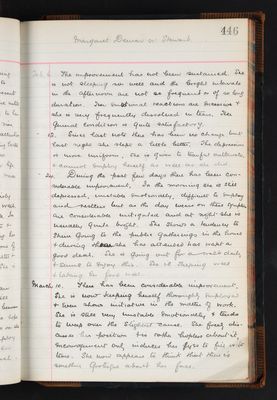 446
Margaret Deuar or Stewart
Feb. 6. The improvement has not been sustained. She
is not sleeping so well and the bright intervals
in the afternoon are not so frequent or of so long
duration. Her emotional reactions are excessive &
she is very frequently dissolved in tears. Her
general condition is quite satisfactory.
12. Since last note there has been no change but
last night she slept a little better. The depression
is more uniform, she is given to tearful outbursts,
& cannot employ herself so well
24. During the past few days there has been con-
siderable improvement. In the morning she is still
depressed, unstable emotionally, difficult to employ
and restless but as the day wears on these symptoms
are considerably mitigated and at night she is
usually quite bright. She shows a tendency to
shun going to the public gatherings in the house
& during those she has attended has wept a
good deal. She is going out for a walk daily
& seems to enjoy this. She is sleeping well
& taking her food well.
March 10. There has been considerable improvement.
She is now keeping herself thoroughly employed
& even shows initiative in the matter of work.
She is still very unstable emotionally & tends
to weep over the slightest cause. She freely dis-
cusses her position & is rather hopeless about it.
Encouragement only induces her to
tears. She now appears to think that there is
something grotesque about her face.